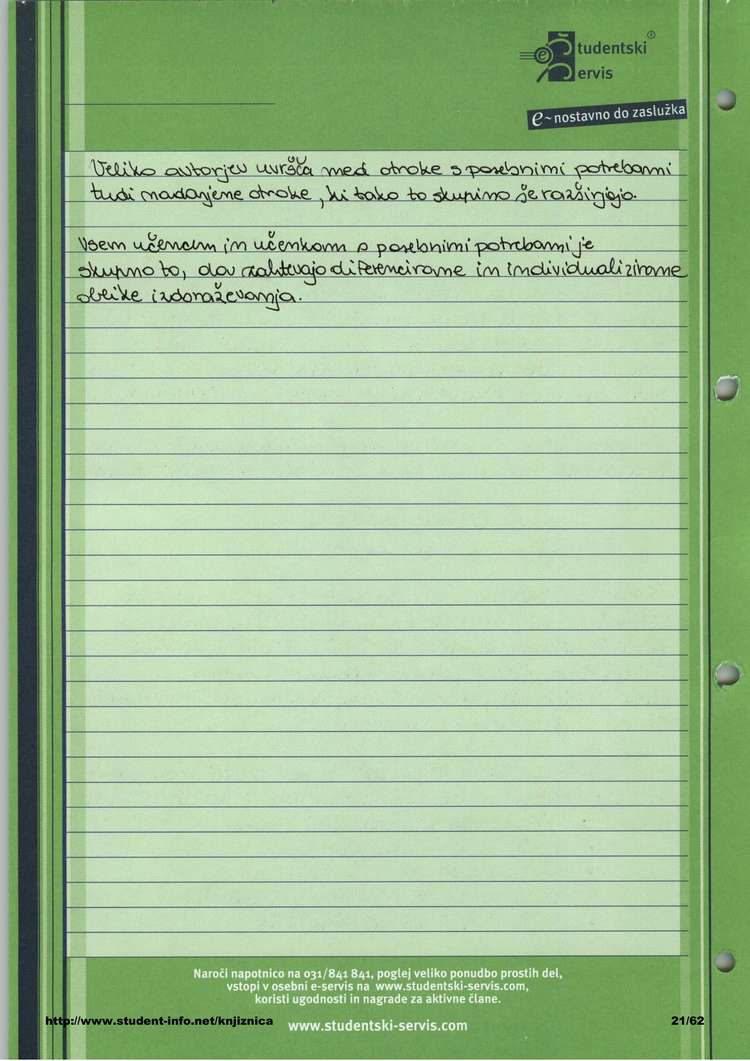 Študentski
Servis
®
e~nostavno do zaslužka
Veliko avtorjev uvršča med otroke s posebnimi potrebami
tudi nadarjene otroke, ki tako to skupino še razširjajo.
Vsem učencem in učenkam s posebnimi potrebami je
skupno to, da zahtevajo diferencirane in individualizirane
oblike izobraževanja.
Naroči napotnico na 031/841 841, poglej veliko ponudbo prostih del,
vstopi v osebni e-servis na www.studentski-servis.com,
koristi ugodnosti in nagrade za aktivne člane.
http://www.student-info.net/knjiznica
www.studentski-servis.com
21/62